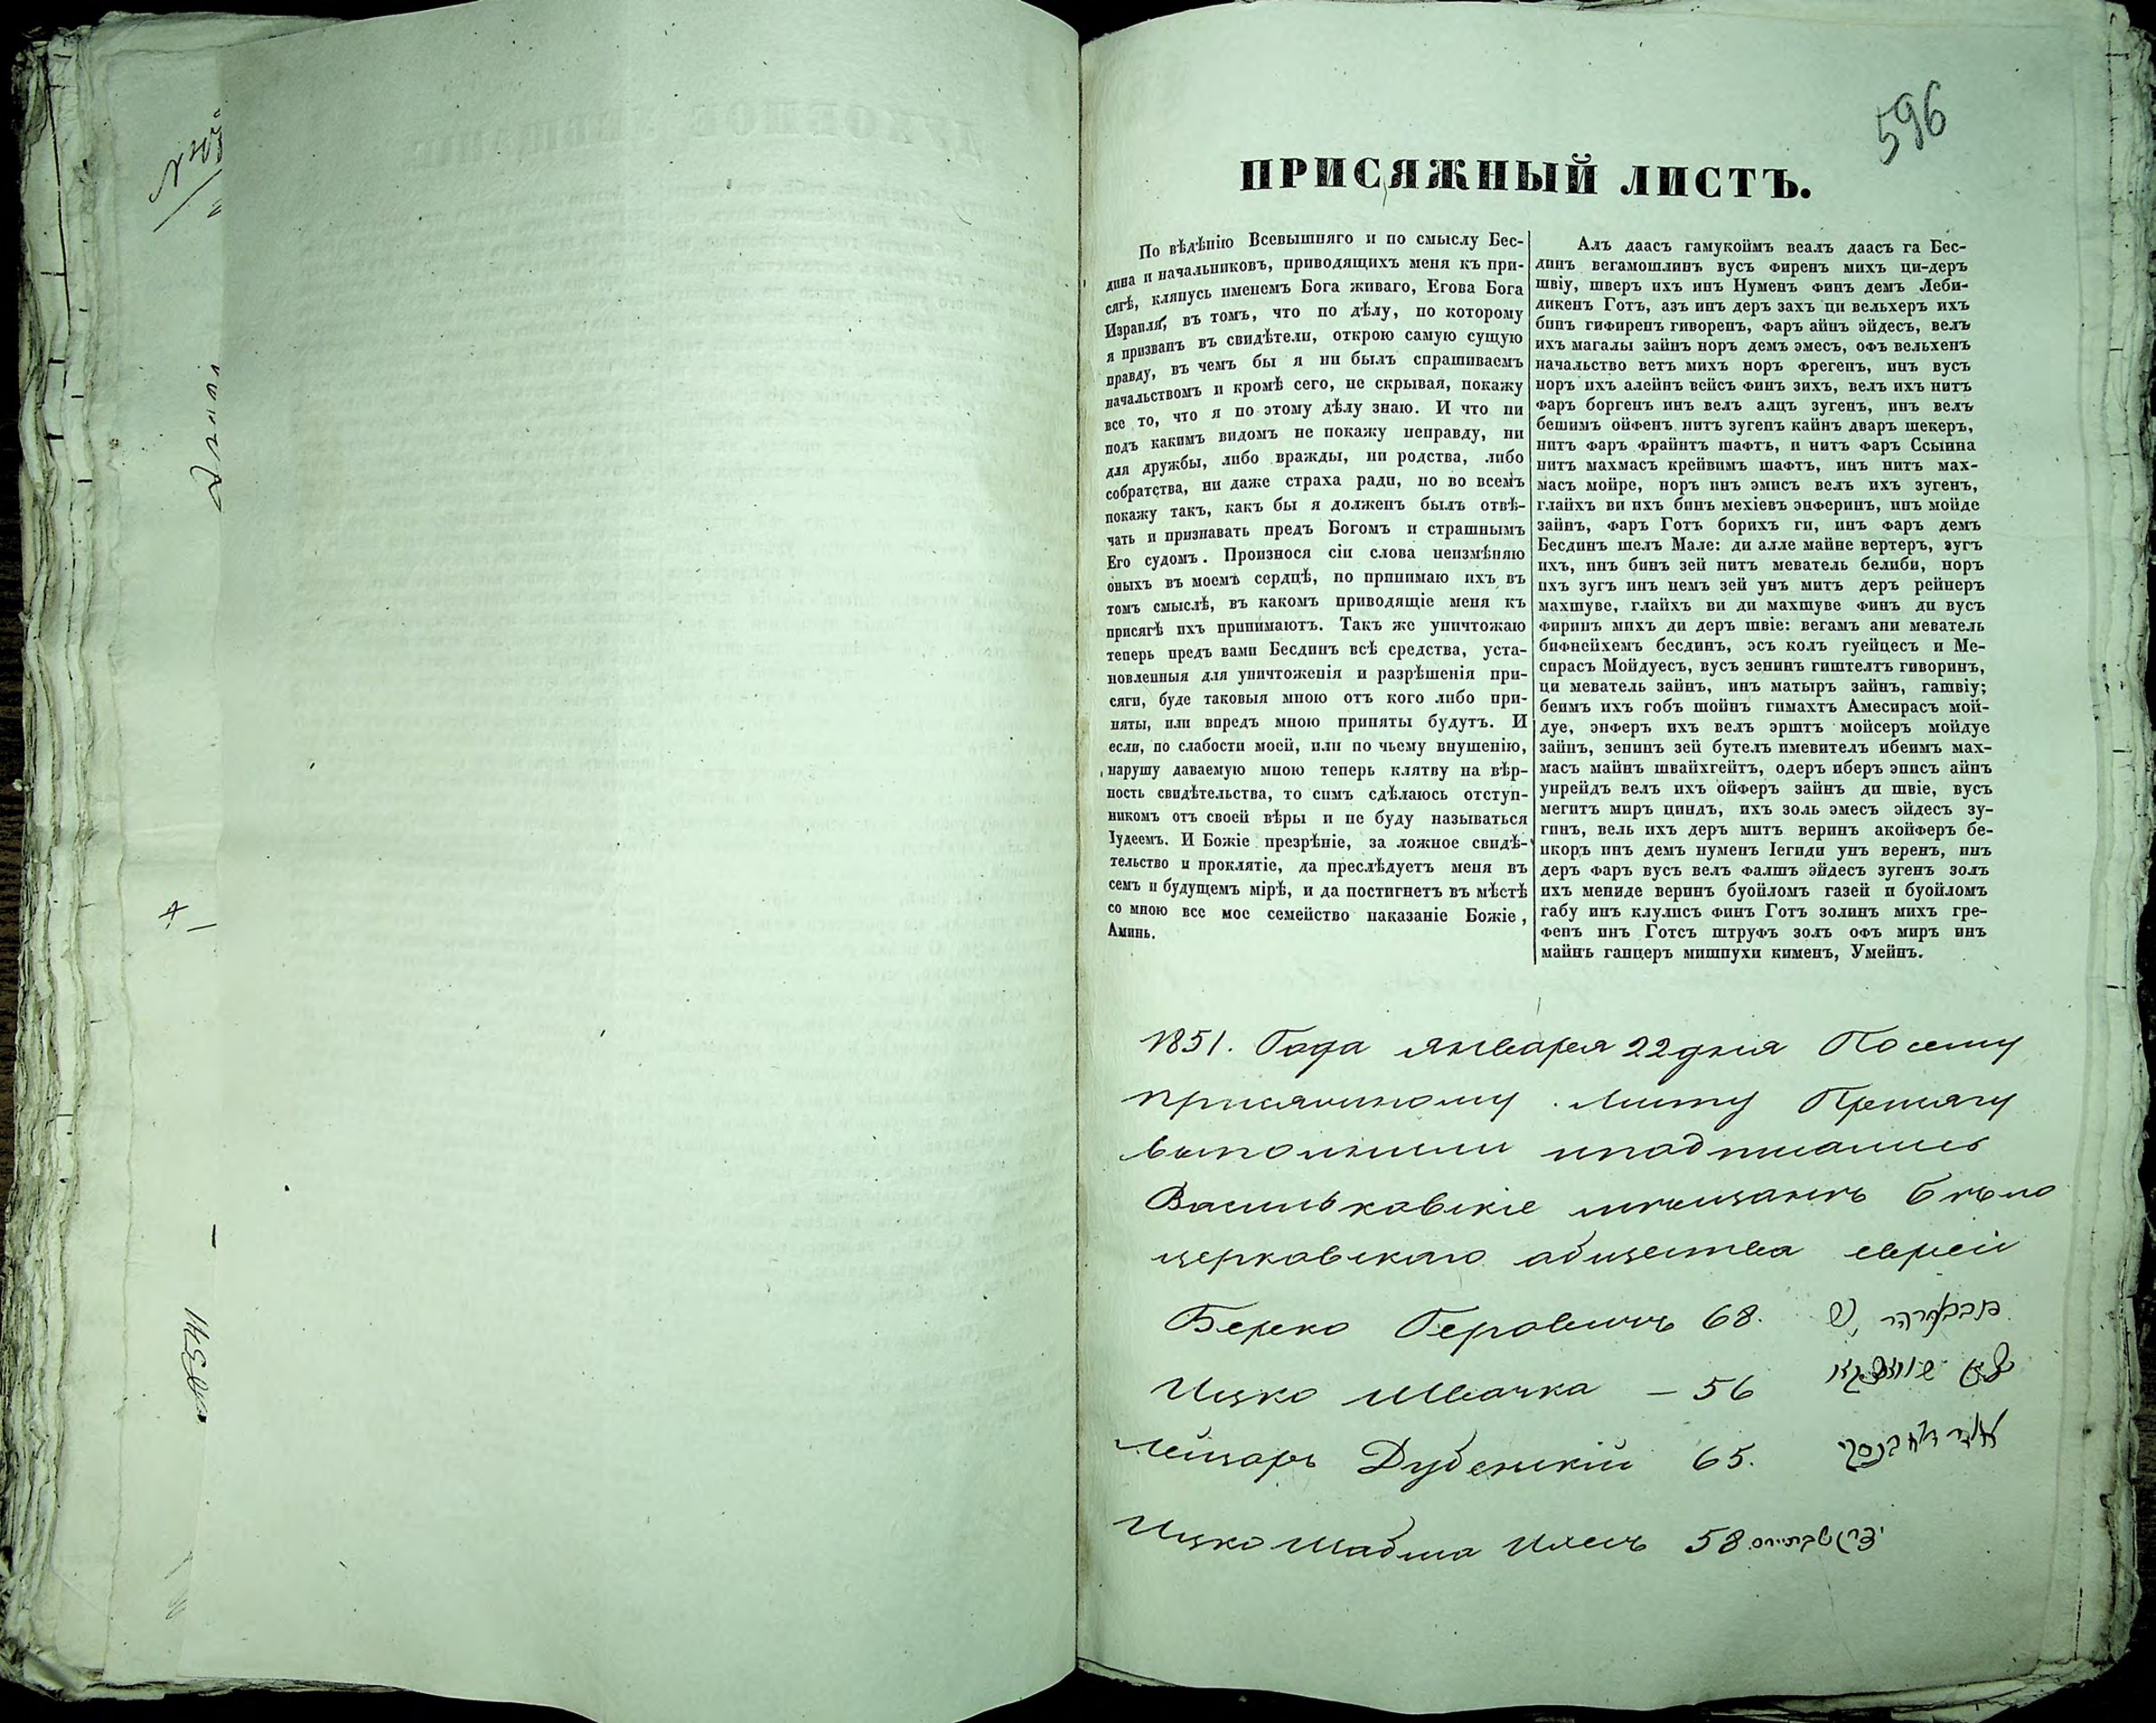 596
ПРИСЯЖНЫЙ ЛИСТЪ.
По вѣдѣнію Всевышняго и по смыслу Бес-
дина и начальниковъ, приводящихъ меня къ при-
сягѣ, клянусь именемъ Бога живаго, Егова Бога
Израиля, въ томъ, что по дѣлу, по которому
я призванъ въ свидѣтели, открою самую сущую
правду, въ чемъ бы я ни былъ спрашиваемъ
начальствомъ и кромѣ сего, не скрывая, покажу
все то, что я по этому дѣлу знаю. И что ни
подъ какимъ видомъ не покажу неправду, ни
для дружбы, либо вражды, ни родства, либо
собратства, ни даже страха ради, но во всемъ
покажу такъ, какъ бы я долженъ былъ отвѣ-
чать и признавать предъ Богомъ и страшнымъ
Его судомъ. Произнося сіи слова неизмѣняю
оныхъ въ моемъ сердцѣ, но принимаю ихъ въ
томъ смыслѣ, въ какомъ приводящіе меня къ
присягѣ ихъ принимаютъ. Такъ же уничтожаю
теперь предъ вами Бесдинъ всѣ средства, уста-
новленныя для уничтоженія и разрѣшенія при-
сяги, буде таковыя мною отъ кого либо при-
няты, или впредъ мною приняты будутъ. И
если, по слабости моей, или по чьему внушенію,
нарушу даваемую мною теперь клятву на вѣр-
ность свидѣтельства, то симъ сдѣлаюсь отступ-
никомъ отъ своей вѣры и не буду называться
Іудеемъ. И Божіе презрѣніе, за ложное свидѣ-
тельство и проклятіе, да преслѣдуетъ меня въ
семъ и будущемъ мірѣ, и да постигнетъ въ мѣстѣ
со мною все мое семейство наказаніе Божіе,
Аминь.
Алъ даасъ гамукоймъ веалъ даасъ га Бес-
динъ вегамошлинъ вусъ фиренъ михъ ци-деръ
швіу, шверъ ихъ инъ Нуменъ финъ демъ Леби-
дикенъ Готъ, азъ инъ деръ захъ ци вельхеръ ихъ
бинъ гифиренъ гиворенъ, фаръ айнъ эйдесъ, велъ
ихъ магалы зайнъ норъ демъ эмесъ, офъ вельхенъ
начальство ветъ михъ норъ фрегенъ, инъ вусъ
норъ ихъ алейнъ вейсъ финъ зихъ, велъ ихъ нитъ
фаръ боргенъ инъ велъ алцъ зугенъ, инъ велъ
бешимъ ойфенъ нитъ зугенъ кайнъ дваръ шекеръ,
нитъ фаръ фрайнтъ шафтъ, и нитъ фаръ Ссынна
нитъ махмасъ крейвимъ шафтъ, инъ нитъ мах-
масъ мойре, норъ инъ эмисъ велъ ихъ зугенъ,
глайхъ ви ихъ бинъ мехіевъ энферинъ, инъ мойде
зайнъ, фаръ Готъ борихъ ги, инъ фаръ демъ
Бесдинъ шелъ Мале: ди алле майне вертеръ, зугъ
ихъ, инъ бинъ зей нитъ меватель белиби, норъ
ихъ зугъ инъ немъ зей унъ митъ деръ рейнеръ
махшуве, глайхъ ви ди махшуве финъ ди вусъ
фиринъ михъ ди деръ швіе: вегамъ ани меватель
бифнейхемъ бесдинъ, эсъ колъ гуейцесъ и Ме-
сирасъ Мойдуесъ, вусъ зенинъ гиштелтъ гиворинъ,
ци меватель зайнъ, инъ матыръ зайнъ, гашвіу;
беимъ ихъ гобъ шойнъ гимахтъ Амесирасъ мой-
дуе, энферъ ихъ велъ эрштъ мойсеръ мойдуе
зайнъ, зенинъ зей бутелъ имевителъ ибеимъ мах-
масъ майнъ швайхгейтъ, одеръ иберъ эписъ айнъ
унрейдъ велъ ихъ ойферъ зайнъ ди швіе, вусъ
мегитъ миръ циндъ, ихъ золь эмесъ эйдесъ зу-
гинъ, вель ихъ деръ митъ веринъ акойферъ бе-
икоръ инъ демъ нуменъ Іегиди унъ веренъ, инъ
деръ фаръ вусъ велъ фалшъ эйдесъ зугенъ золъ
ихъ мениде веринъ буойломъ газей и буойломъ
габу инъ клулисъ финъ Готъ золинъ михъ гре-
фенъ инъ Готсъ штруфъ золъ офъ миръ инъ
майнъ ганцеръ мишпухи кименъ, Умейнъ.
1851. Года Января 22 дня По сему
присяжному Листу Присягу
выполнили иподписались
Васильковскіе мѣщанѣ Бѣло
церковскаго общества евреи
Берко Геровичъ 68.
Ицко Швачка — 56
Лейзаръ Дубенскій 65.
Ицко Шабша 58